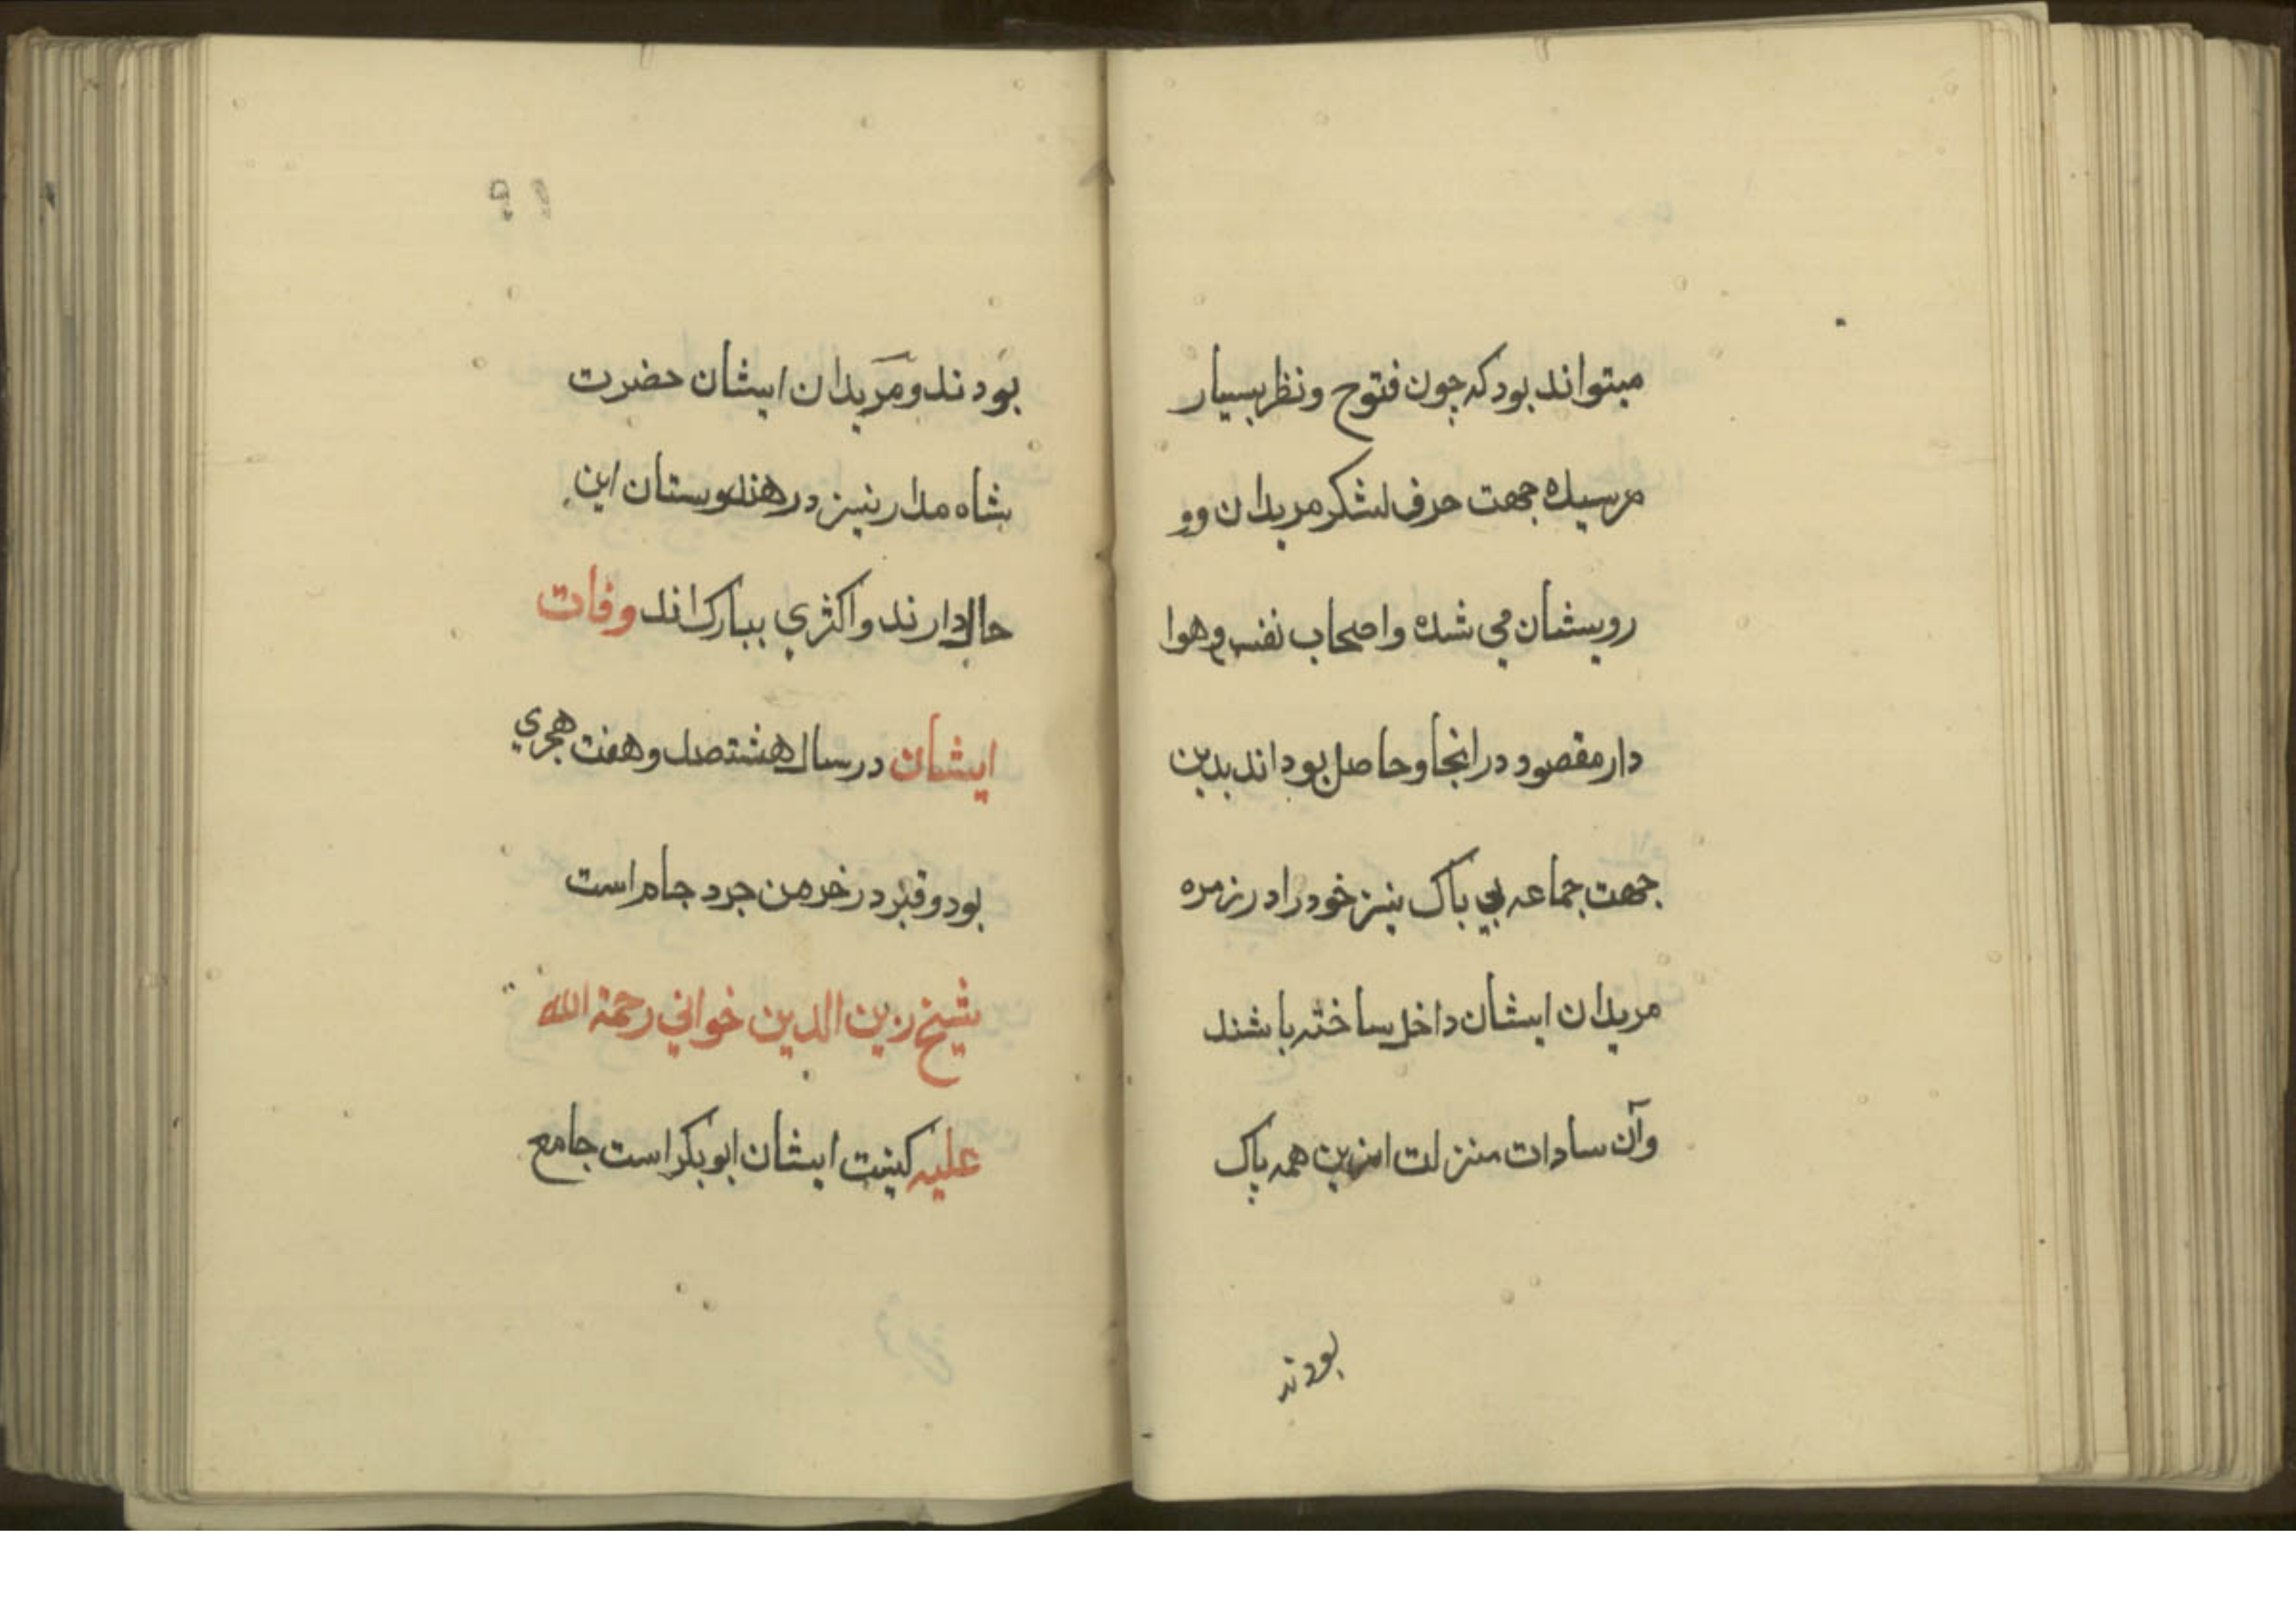 میتواند بود که چون فتوح و نظر بسیار
مرسیده جهت حرف لشکر مریدان و و
رویشان می شده و اصحاب نفس و هوا
دار مقصود در انجا و حاصل بود اند بدین
جهت جماعه بی باک نیز خود را در زمره
مریدان ایشان داخل ساخته باشند
وآن سادات منزلت ازین همه پاک
بودند
بودند و مریدان ایشان حضرت
شاه مدار نیز در هندوستان این
حال دارند و اکثری بیبارک اند وفات
ایشان در سال هشتصد و هفت هجری
بود و قبر در خرمن جرد جام است
شیخ زین الدین خوانی رحمة الله
علیه کنیت ایشان ابو بکر است جامع